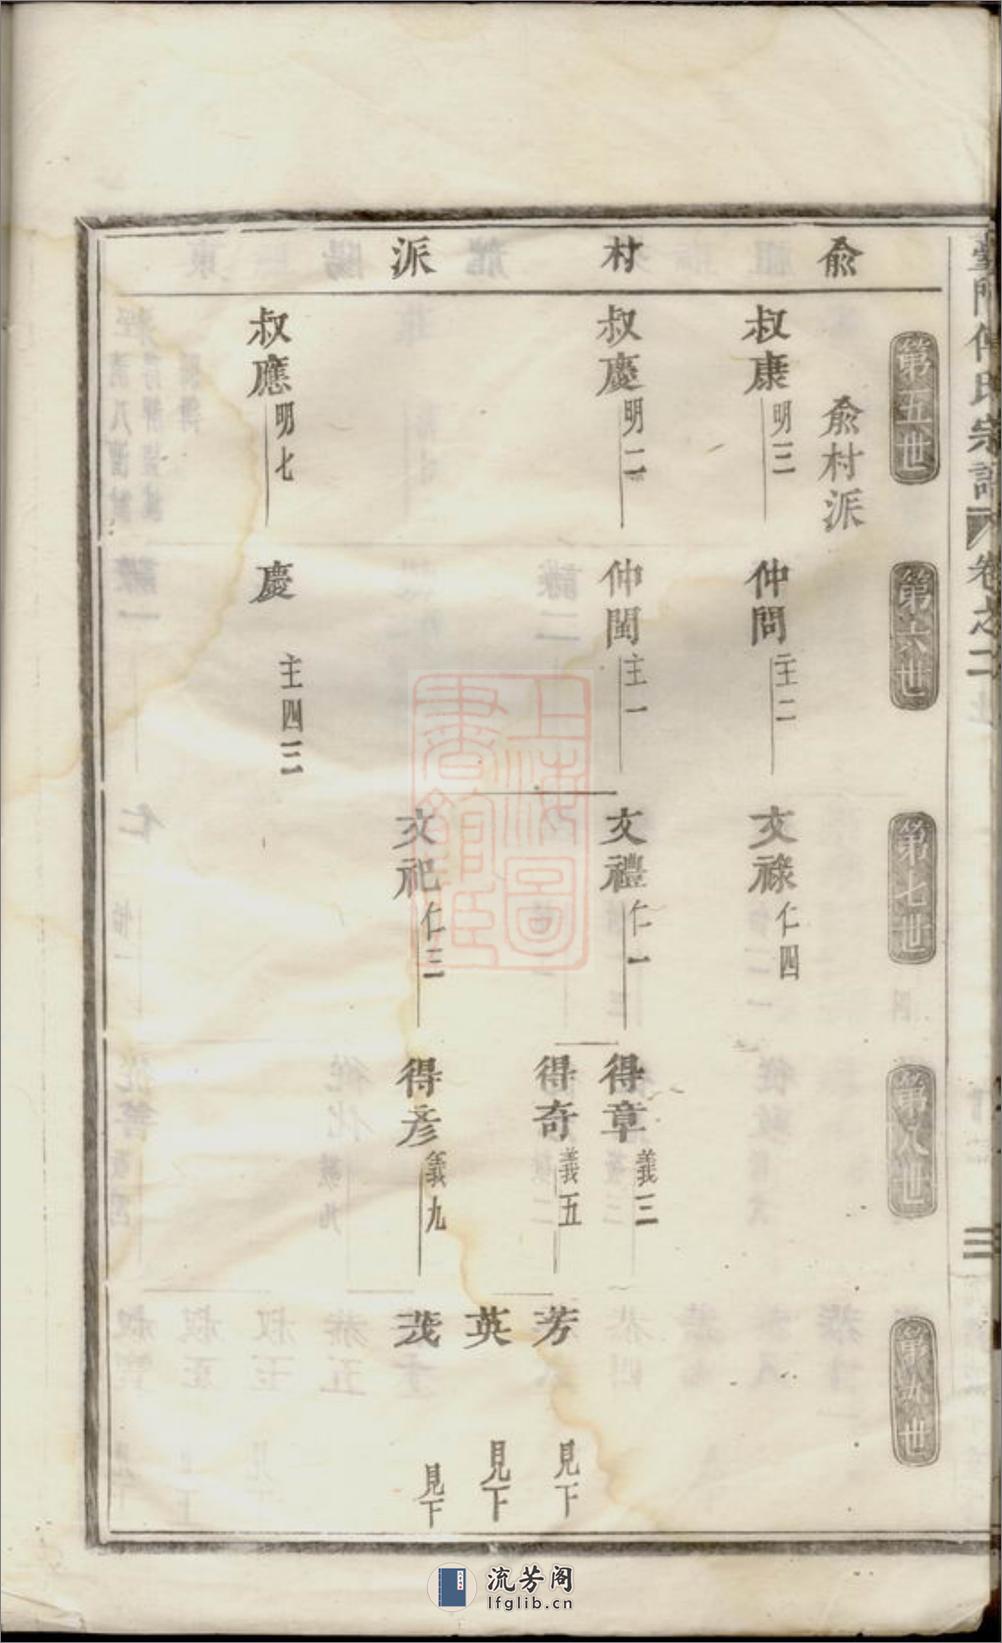 氏宗譜 卷之二
三
俞村派
第五世
第六世
第七世
第八世
第九世
俞村派
叔康 明三
仲問 主二
文祿 仁四
叔慶 明二
仲閏 主一
文禮 仁一
得章 義三
得奇 義五
芳 見下
英 見下
文祀 仁三
得彥 義九
茂 見下
叔應 明七
慶 主四三
上海圖書館臧
流芳阁
lfglib.cn